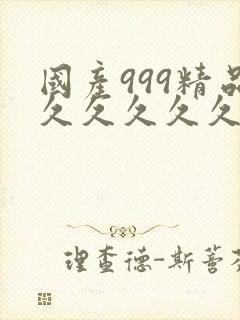 國產999精品
久久久久久
理查德-斯蒈芬